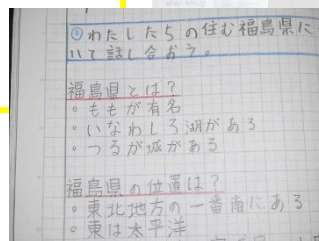 ◎わたしたちの住む福島県に
いて話し合おう。
福島県とは?
・ももが有名
・いなわしろ湖がある
・つるが城がある
福島県の位置は?
・東北地方の一番南にある
・東は太平洋